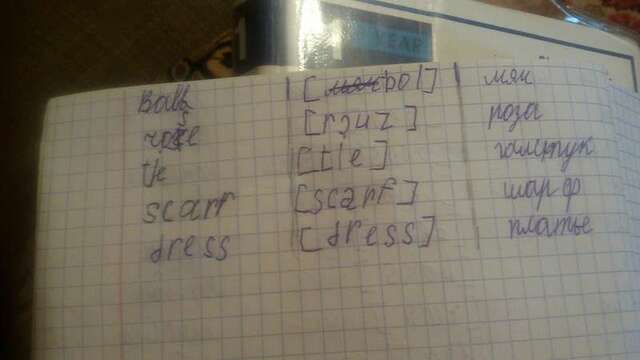 YEAR
Ball [bol] мяч
rose [rəuz] роза
tie [tie] галстук
scarf [scarf] шарф
dress [dress] платье